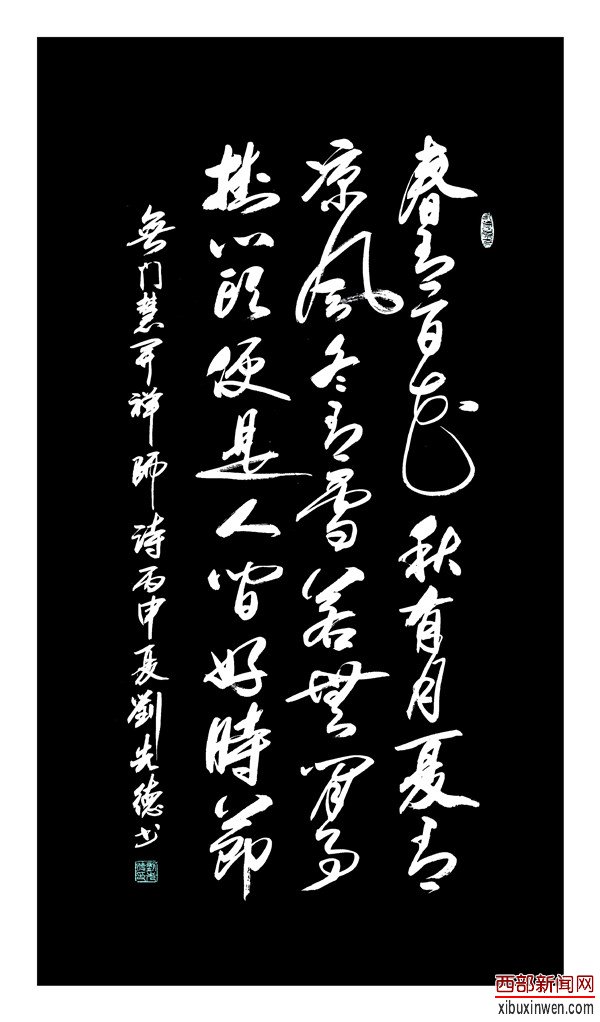 春有百花秋有月夏有
凉風冬有雪若無閑事
掛心頭便是人間好時節
無门慧开禅師诗丙申夏劉先德书
西部新闻网
xibuxinwen.com